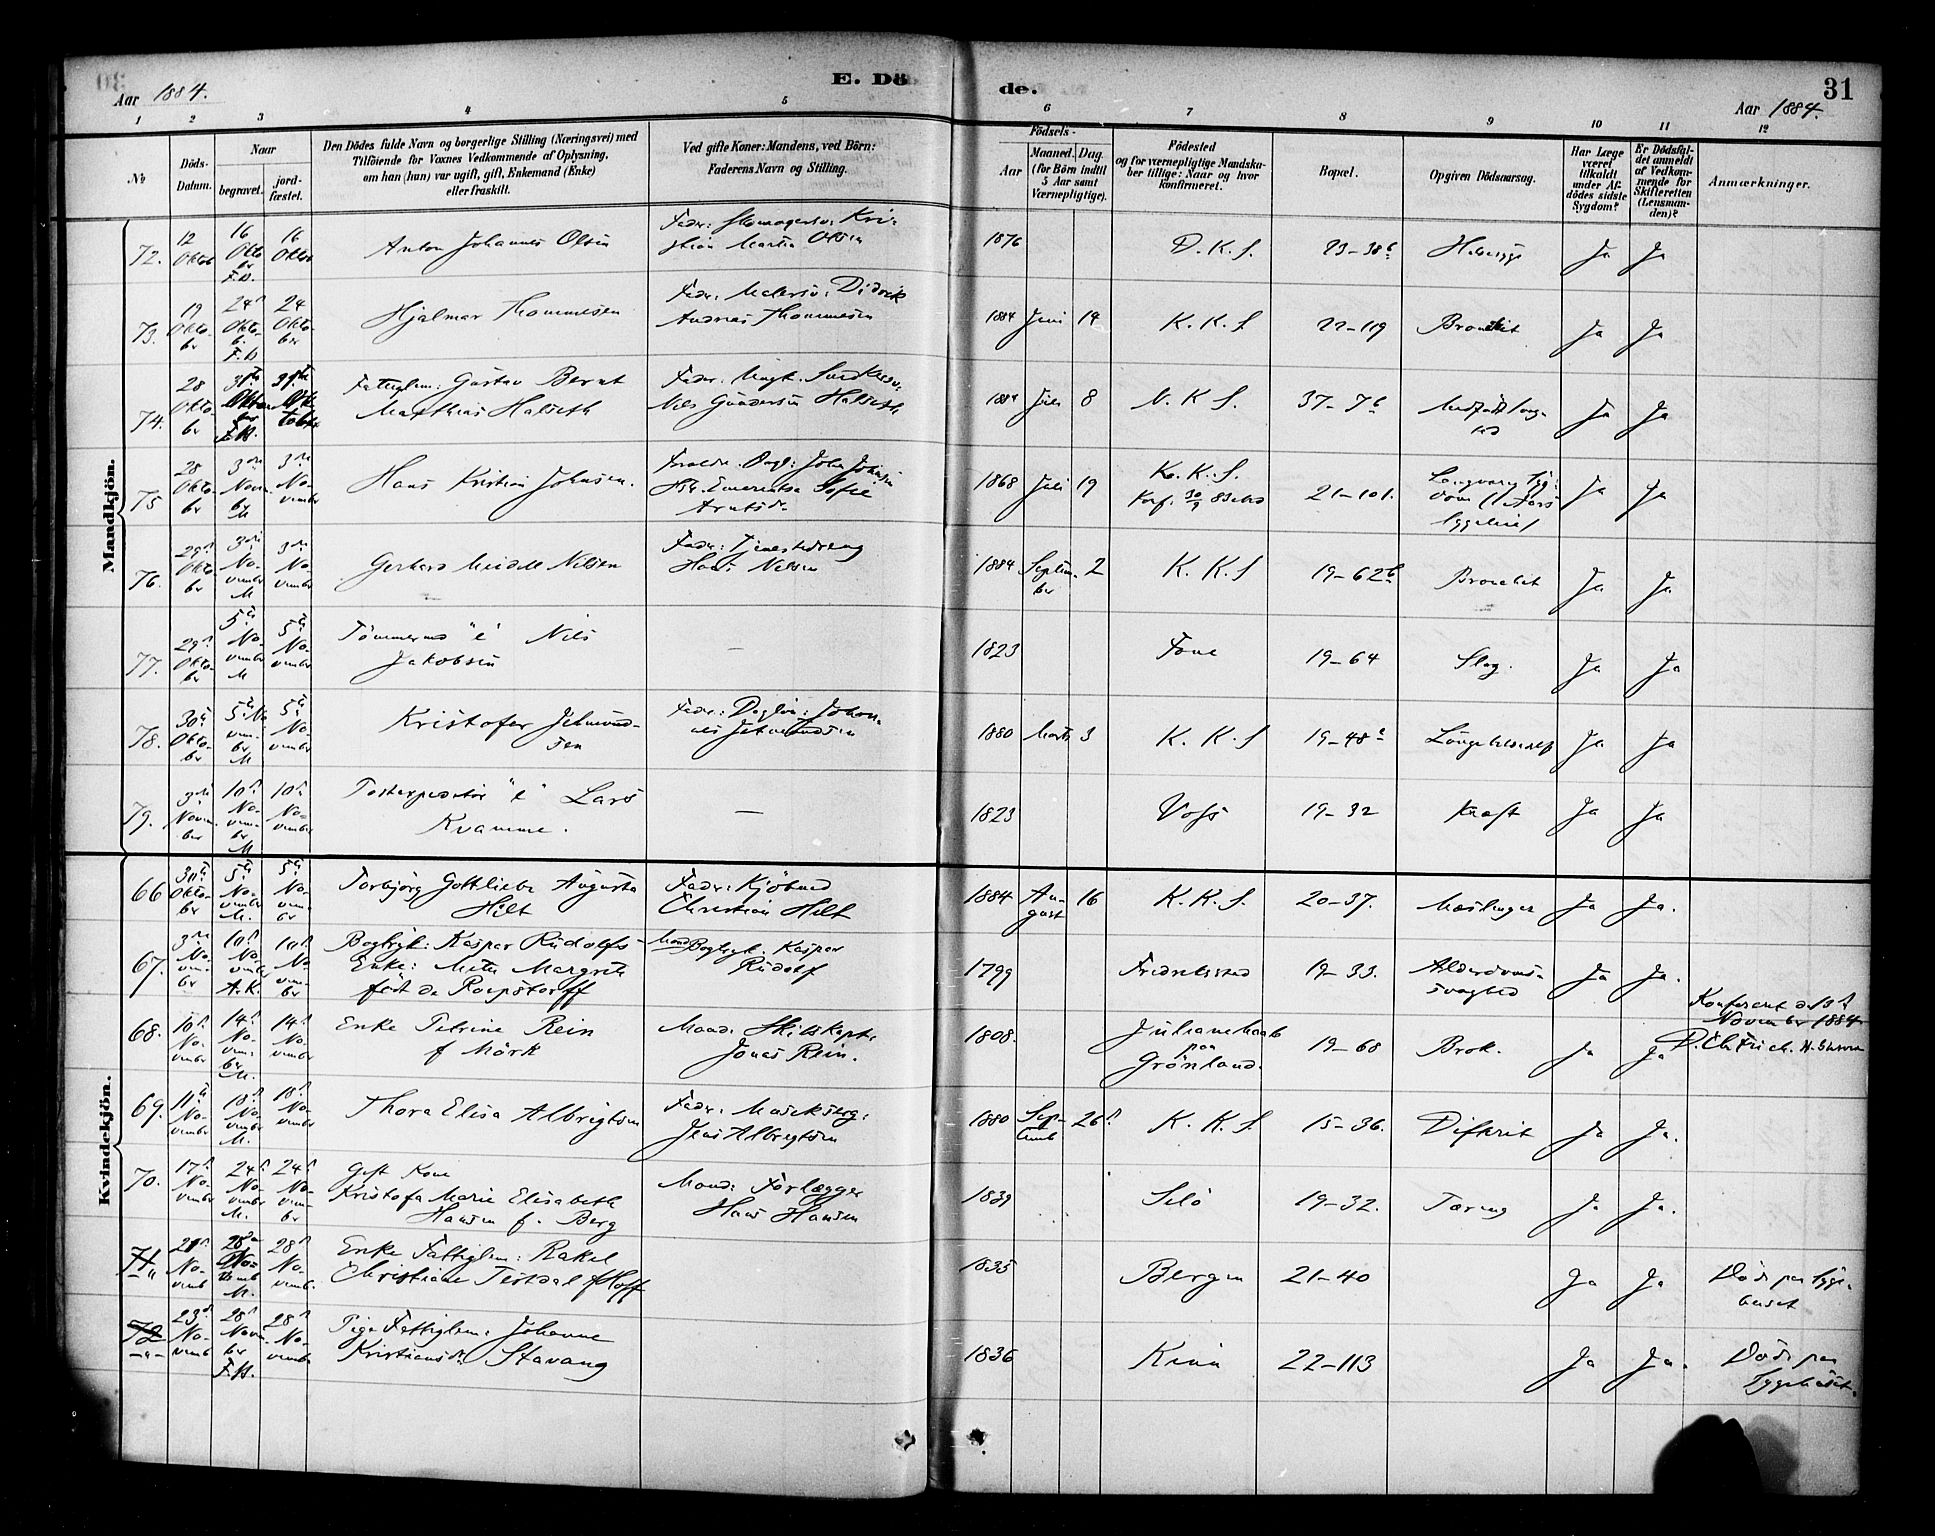 Aar 1884.
E. Dö
de.
31
Aar 1884.
1 2 3 4 5 6 7 8 9 10 11 12
No
Döds-
Datum.
Naar
begravet.
jord-
fæstet.
Den Dödes fulde Navn og borgerlige Stilling (Næringsvei) med
Tilföiende for Voxnes Vedkommende af Oplysning,
om han (hun) var ugift, gift, Enkemand (Enke)
eller fraskilt.
Ved gifte Koner: Mandens, ved Börn:
Faderens Navn og Stilling.
Födsels-
Aar
Maaned. Dag.
(for Börn indtil
5 Aar samt
Værnepligtige).
Födested
og for værnepligtige Mandska-
ber tillige: Naar og hvor
konfirmeret.
Bopæl.
Opgiven Dödsaarsag.
Har Læge
været
tilkaldt
under Af-
dödes sidste
Sygdom?
Er Dödsfal-
det anmeldt
af Vedkom-
mende for
Skifteretten
(Lensman-
den)?
Anmærkninger.
Mandkjön.
72. 12 Oktob 16 Okto ber F.H. 16 Oktob Anton Johannes Olsen Fader: Skomagersv: Kri-
stian Martin Olsen 1876 D. K. S. 23-38b Ja Ja
73. 19 Okto- ber 24 Okto- b. F.H 24 Okto- ber Hjalmar Thommesen Fader: Malersv: Didrik
Andreas Thommesen 1884 Juni 14 K. K. S. 22-119 Bronchit Ja Ja
74. 28 Okto- ber 31te Oktober F.H. 31te Oktober Fattiglem: Gustav Bernt
Matthias Halseth Fader:
Nils Gundersen Halseth 1884 Juli 8 N. K S. 37-7b Ja Ja
75 28 Okto- ber 3die Novem- ber M 3die No- vember Hans Kristian Johnsen. Forældr. Ungk: John Johnsen
Emerentse Sofie
Arntsdr. 1868 Juli 19 K. K. S.
Konf. 30/9 83 21-101. Langvarig Syg-
dom Ja Ja
76. 29 Okto- ber 3die No- vember M 3die No- vember Gerhard Meidell Nilsen Fader: Tjenestedreng
Hans Nilsen 1884 Septem- ber 2 K. K. S 19-62b Bronchit Ja Ja
77. 29 Okto- ber 5te No- vember M 5te No- vember Tömmermd "e" Nils
Jakobsen — 1823 Fane 19-64 Slag. Ja Ja
78. 30te Okto- ber 5te No- vem- ber M 5te No- vember Kristofer Jetmund-
sen Fader: Daglön: Johan-
nes Jetmundsen 1880 Marts 3 K. K. S 19-48 Ja Ja
79. 3die Novem- ber 10 No- vem- ber M 10 No- vember "e" Lars
Kvamme. — 1823 Voss 19-32 Kræft Ja Ja
Kvindekjön.
66 30te Okto- ber 5te No- vember M. 5te No- vem- ber Torbjörg Gottliebe Augusta
Hilt Fader: Kjöbmd
Christian Hilt 1884 Au-
gust 16 K. K. S. 20-37. Mæslinger Ja Ja.
67. 3die No- vem- ber 10 No- vember A.K. 10 No- vem- ber Bogtryk: Kaspar Rudolfs
Enke: Mette Margrete
född de Roepstorff Mand Bogtryk. Kaspar
Rudolf 1799 Fredrikstad 19-33. Alderdoms-
svaghed Ja Ja.
68. 10 No- vember 14 No- vem- ber M. 14 No- vember Enke Petrine Rein
f Mörk Mand: Skibskapt:
Jonas Rein. 1808. Julianehaab
paa
Grönland. 19-68 Brok. Ja Ja Konfereret d. 13
November 1884
69. 11te No- vember 18 No- vember M. 18 No- vember Thora Elisa Albregtsen Fader:
Jens Albregtsen 1880 Sep-
temb 26 K. K. S. 15-36. Difterit Ja Ja.
70. 17 No- vember 24 No- vember M. 24 No- vem- ber Gift Kone
Kristofa Marie Elisabeth
Hansen f. Berg Mand: Forlægger
Hans Hansen 1839 Selö 19-32. Tæring Ja Ja.
71 21 No- vemb 28 No- vemb M. 28 No- vemb. Enke Fattiglem: Rakel
Christiane Testdal f Hoff 1835 Bergen 21-40 Ja Ja Död paa Syge-
huset
72 23 No- vemb 28 Novem- ber F.H. 28 No- vember Pige Fattiglem: Johanne
Kristiansdr. Stavang 1836 Kinn 22-113 Ja Ja. Död paa
Sygehuset.